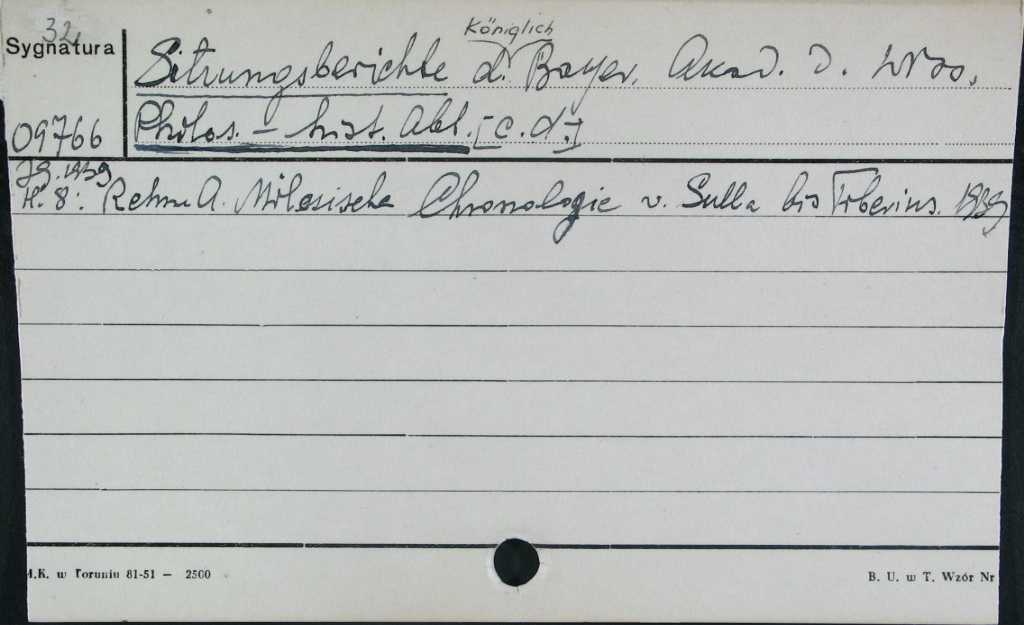 32
Königlich
Sygnatura
Sitzungsberichte d. Bayer. Akad. d. Wiss.
09766
Philos. - hist. Abt. [c. d.]
Jg. 1939
H. 8: Rehm A. Milesische Chronologie v. Sulla bis Tiberius. 1939
.K. w Toruniu 81-51 — 2500
B. U. w T. Wzór Nr